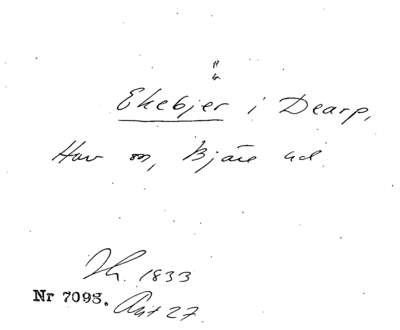 Ekebjer i Dearp,
Hov sn, Bjäre hd.
1833
Nr 7093. Akt 27